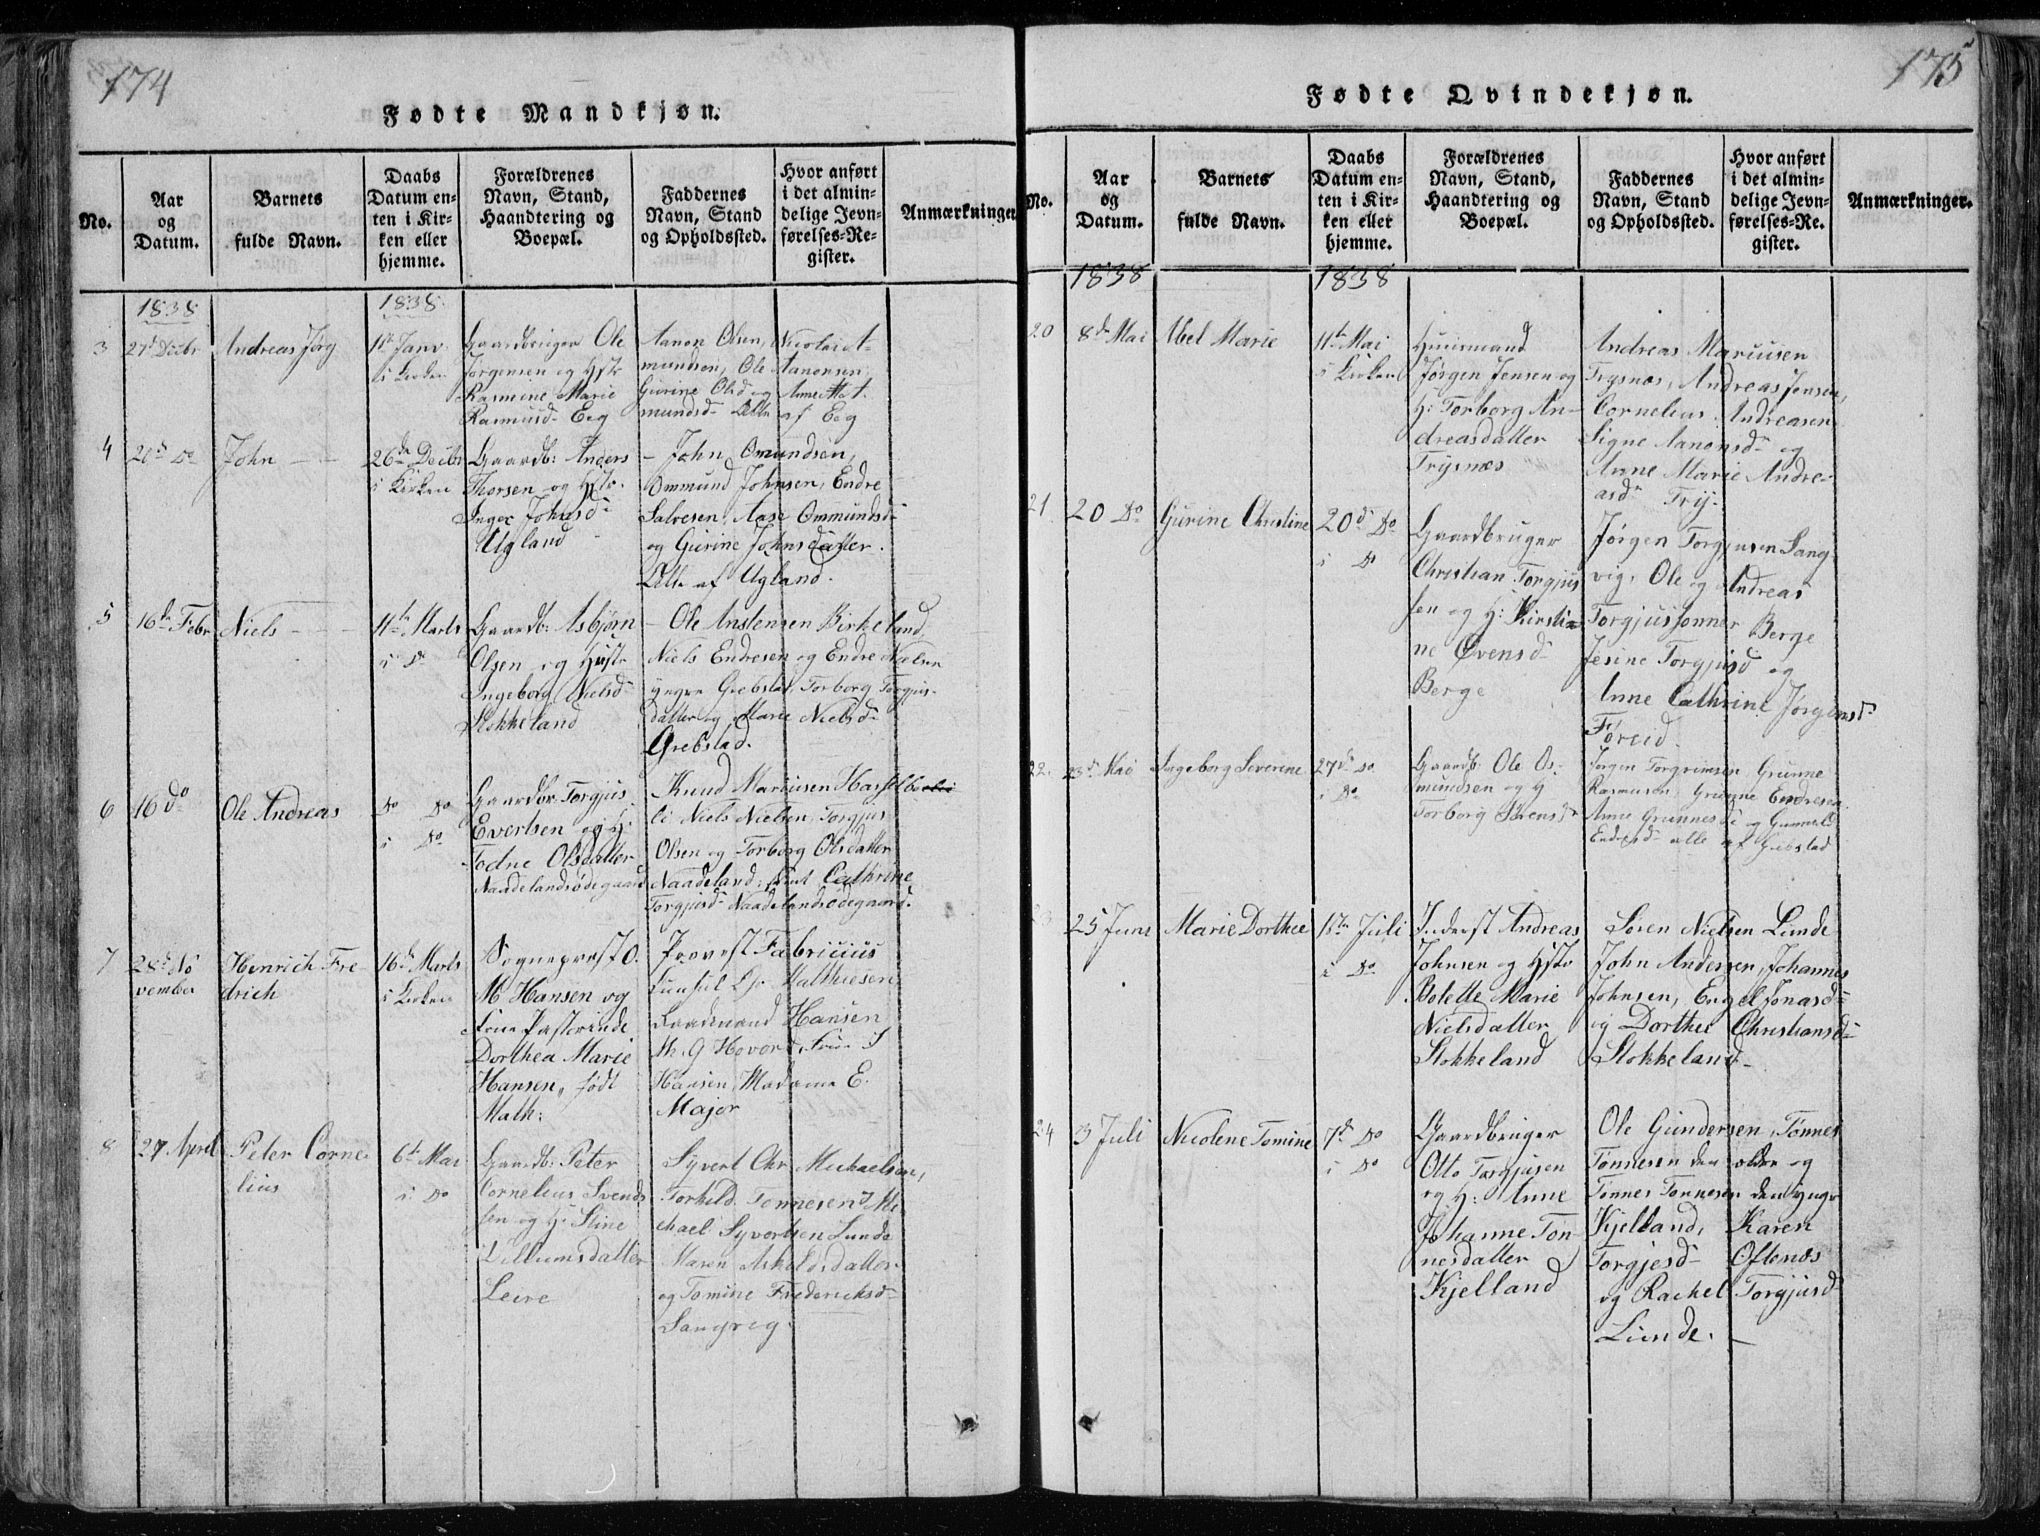 174
Fødte Mandkjøn.
No.
Aar
og
Datum.
Barnets
fulde Navn.
Daabs
Datum en-
ten i Kir-
ken eller
hjemme.
Forældrenes
Navn, Stand,
Haandtering og
Boepæl.
Faddernes
Navn, Stand
og Opholdssted.
Hvor anført
i det almin-
delige Jevn-
førelses-Re-
gister.
Anmærkninger
1838
1838
3
27d Decbr
Andreas Jørg
11te Janv
i Kirken
Gaardbruger Ole
Jørgensen og Hstr
Rasmine Marie
Rasmusd Eeg
Aanon Olsen, Nicolai A-
mundsen, Ole Aanonsen,
Gurine Olsd og Anne Mar. A.
mundsd Alle af Eeg
4
20d Do
John
26de Decbr
i Kirken
Gaardb: Anders
Thorsen og Hstr.
Inger Johnsd
Ugland
John Omundsen,
Ommund Johnsen, Endre
Salvesen, Aase Ommundsd
og Gurine Johnsdatter.
Alle af Ugland.
5
16de Febr
Niels
11te Marts
i Do
Gaardb: Asbjørn
Olsen og Hustr
Ingeborg Nielsd
Stokkeland
Ole Anstensen Birkeland,
Niels Endresen og Endre Nielsen
yngre Grebstad, Torborg Torgjus-
datter og Marie Nielsd
Grebstad.
6
16 do
Ole Andreas
Do Do
i Do
Gaardbr. Torgjus
Evertsen og H:
Todne Olsdatter
Naadelandsødegaard
Knud Mariusen Hasselbe
li Niels Nielsen, Torgjus
Olsen og Torborg Olsdatter
Naadeland, samt Cathrine
Torgjusd Naadelandsødegaard.
7
28d No
vember
Henrich Fre-
drich
16d Marts
i Kirken
Sognepræst O.
M Hansen og
Frue Pastorinde
Dorthea Marie
Hansen, født
Math:
Provst Fabricius
Consul Matthiesen
Hansen
M. G Hovor Frue S
Hansen, Madame E.
Major
8
27 April
Peter Corne-
lius
6te Mai
i Do
Gaardb: Peter
Cornelius Svend
sen og H: Stine
Villumsdatter
Leire
Syvert Chr Michaelsen,
Torkild Tønnesen, Mi
chael Syvertsen Lunde
Maren Askeldsdatter
og Tomine Fredericksd
Sangvig.
175
Fødte Qvindekjøn.
No.
Aar
og
Datum.
Barnets
fulde Navn.
Daabs
Datum en-
ten i Kir-
ken eller
hjemme.
Forældrenes
Navn, Stand,
Haandtering og
Boepæl.
Faddernes
Navn, Stand
og Opholdssted.
Hvor anført
i det almin-
delige Jevn-
førelses-Re-
gister.
Anmærkninger.
1838
1838
20
8de Mai
Abel Marie
11te Mai
i Kirken
Huusmand
Jørgen Jensen og
H: Torborg An-
dreasdatter
Trysnæs
Andreas Mariusen
Trysnæs, Andreas Jensen,
Cornelius Andreasen
Signe Aanonsd og
Anne Marie Andre-
asd Try.
21.
20 Do
Gurine Christine
20d Do
i Do
Gaardbruger
Christian Torgjus
sen og H: Kirsti-
ne Øvensd
Berge
Jørgen Torgjusen Sang-
vig, Ole og Andreas
Torgjussønner Berge
Jesine Torgjusd og
Anne Cathrine Jørgensd
Føreid.
22.
23d Mai
Ingeborg Severine
27d Do
i Do
Gaardb: Ole Os-
mundsen og H
Torborg Sørensd
Jørgen Torgrimsen, Grunne
Rasmusen, Grunne Endresen
Anne Grunnesd og Gunnild
Endresd alle af Grebstad
23
25 Juni
Marie Dorthee
18te Juli
i Do
Inderst Andreas
Johnsen og Hstr
Bolette Marie
Nielsdatter
Stokkeland
Søren Nielsen Lunde
John Andersen, Johannes
Johnsen, Engel Jonasd
og Dorthee Christiansd
Stokkeland
24
3 Juli
Nicolene Tomine
7d Do
i Do
Gaardbruger
Otto Torgjusen
og H: Anne
Johanne Tøn-
nesdatter
Kjelland
Ole Gundersen, Tønnes
Tønnesen den ældre og
Tønnes Tønnesen den yngre
Kjelland, Karen
Torgjesd Oftenæs
og Rachel Torgjusd
Lunde.